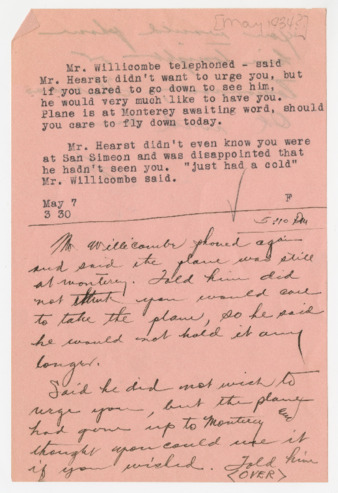 [May 1934?]
Mr. Willicombe telephoned - said
Mr. Hearst didn't want to urge you, but
if you cared to go down to see him,
he would very much like to have you.
Plane is at Monterey awaiting word, should
you care to fly down today.
Mr. Hearst didn't even know you were
at San Simeon and was disappointed that
he hadn't seen you. "just had a cold"
Mr. Willicombe said.
May 7
3 30
F
5:210 PM
Mr Willicombe phoned again
and said the plane was still
at monterey. Told him did
not think you would care
to take the plane, so he said
he would not hold it any
longer.
Said he did not wish to
urge you, but the plane
had gone up to Monterey and
thought you could use it
if you wished. Told him
(OVER)